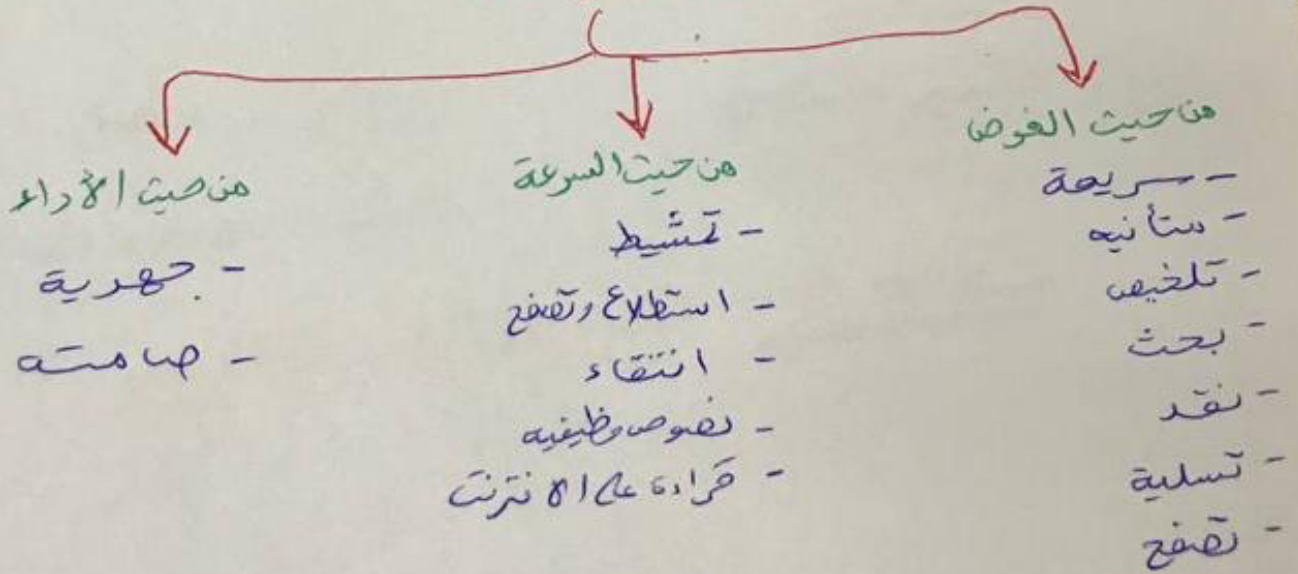 من حيث الغرض
- سريعة
- متأنيه
- تلخيص
- بحث
- نقد
- تسلية
- تصفح
من حيث السرعة
- تمشيط
- استطلاع وتصفح
- انتقاء
- نصوص وظيفيه
- قراءة على الانترنت
من حيث الأداء
- جهرية
- صامته